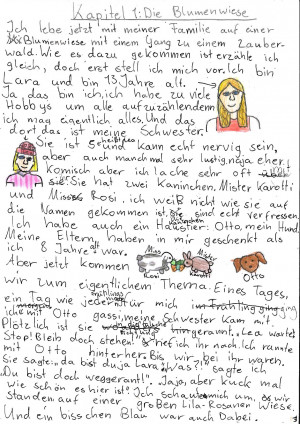 Kapitel 1: Die Blumenwiese
Ich lebe jetzt mit meiner Familie auf einer
Blumenwiese mit einem Gang zu einem Zauber-
wald. Wie es dazu gekommen ist erzähle ich
gleich, doch erst stell ich mich vor. Ich bin
Lara und bin 13 Jahre alt.
Ja, das bin ich, ich habe zu viele
Hobbys um alle aufzuzählen denn
ich mag eigentlich alles. Und das
dort das ist meine Schwester.
Sie ist 5 heißt Lea
und kann echt nervig sein,
aber auch manchmal sehr lustig, naja eher
komisch aber ich lache sehr oft
Sie hat zwei Kaninchen, Mister Karotti
und Miss Rosi, ich weiß nicht wie sie auf
die Namen gekommen ist. Sie sind echt verfressen.
Kaninchen
Ich habe auch ein Haustier: Otto, mein Hund.
Meine Eltern haben in mir geschenkt als
ich 8 Jahre war.
Aber jetzt kommen
Miss Rosi
Mister Karotti
Otto
wir zum eigentlichem Thema. Eines Tages,
ein Tag wie jeder im Frühling ging
ich mit Otto gassi, meine Schwester kam mit.
Plötzlich ist sie
hin gerannt. „Lea warte!
Stop! Bleib doch stehen!" rief ich ihr nach. Ich rannte
mit Otto hinterher. Bis wir bei ihr waren.
Sie sagte: „da bist du ja Lara." „Was?!" sagte ich
„Du bist doch weggerannt!". „Jaja, aber kuck mal
wie schön es hier ist". Ich schaute mich um, es wir
standen auf einer großen Lila-Rosanen Wiese.
Und ein bisschen Blau war auch Dabei.